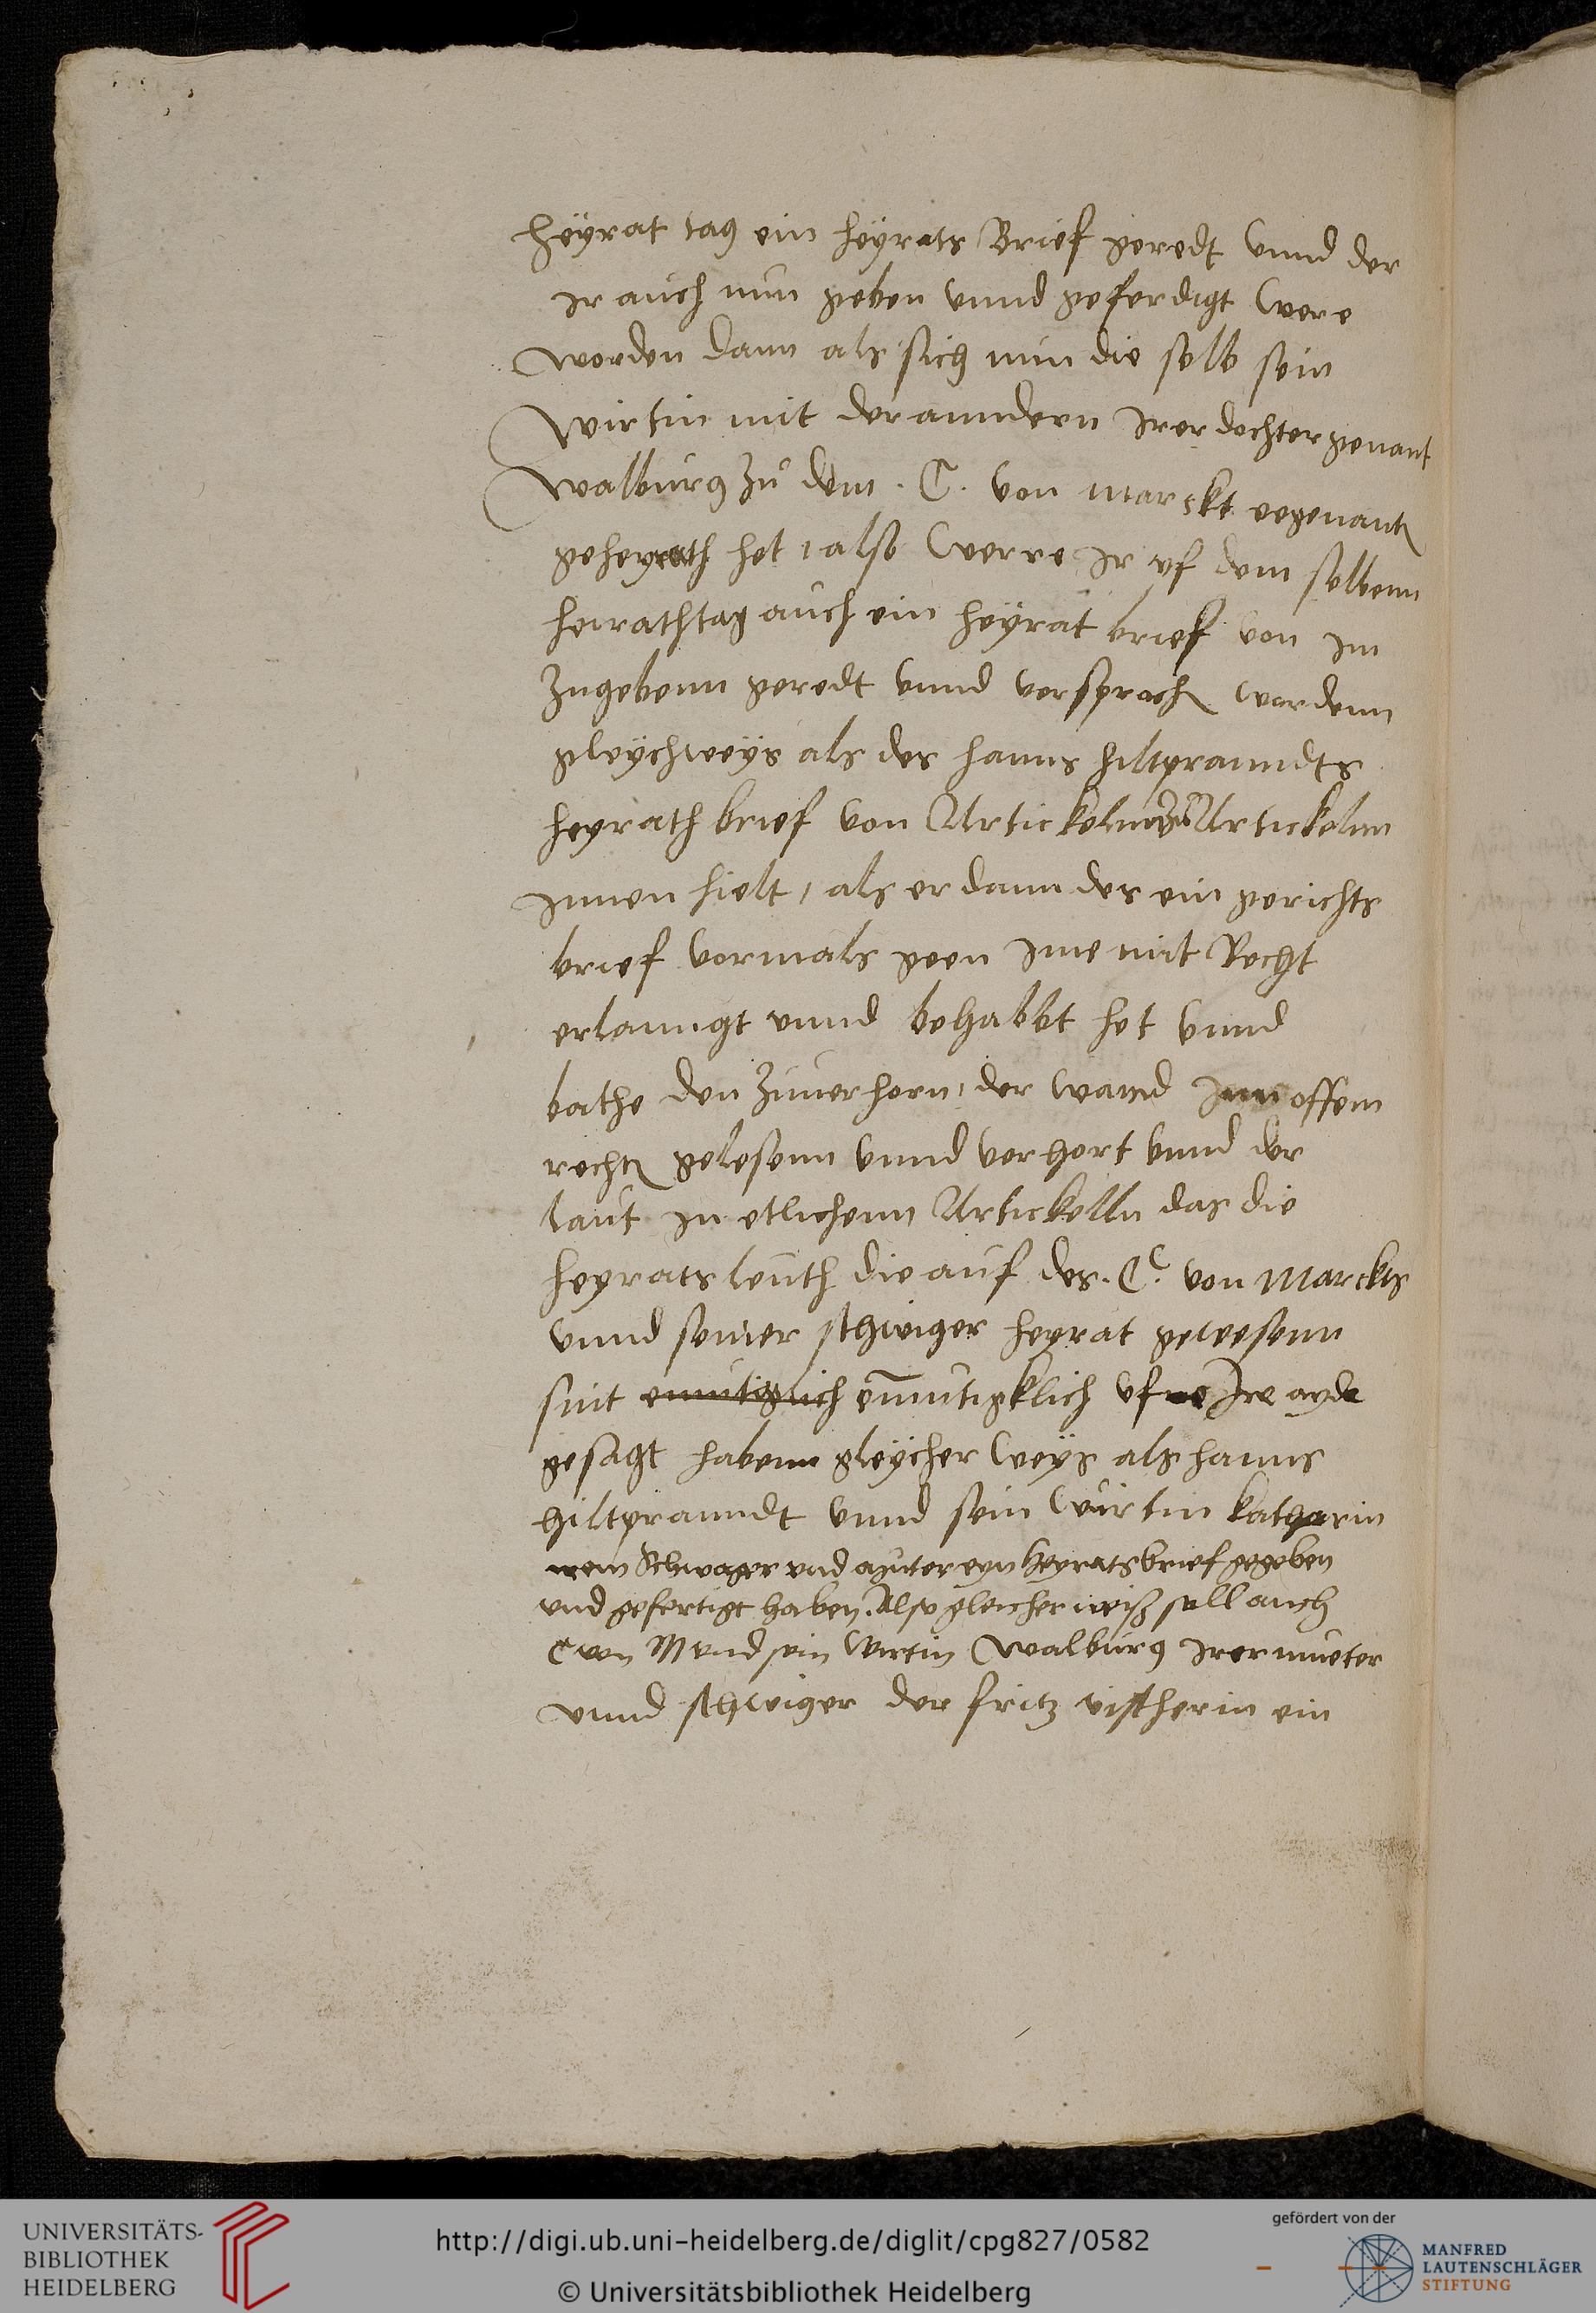 heyrat tag ein heyrats Brief geredt vnnd der
Ir auch nun geben vnnd geferdigt were
worden dann als sich nun die selb sein
wirtin mit der anndern Irer dochter genant
walburg zu dem . C . von Marckt ee genant
geheyrath het , also werre Ir vf dem selbenn
heirathtag auch ein heyrat brief von Im
zugebenn geredt vnnd versproch wordenn
gleychweys als des hanns hiltpranndts
heyrath brief von Artickeln zu Artickelnn
Innen hielt , als er dann des ein gerichts
brief vormals geen Ime mit Recht
erlanngt vnnd behabbt het vnnd
bathe den zuuerhorn , der ward Inn offem
recht gelesenn vnnd verhort vnnd der
laut In etlichenn Artickelln das die
heyratsleuth die auf des . C . von Marckts
vnnd seiner schwiger heyrat gewesenn
sint emutigclich emutigklich vf Ire ayde
gesagt habenn gleycher weys als hanns
hiltpranndt vnnd sein wirtin katharin
Schwager vnd eyn heyratsbrief gegeben
vnd gefertigt haben . Also gleicher weiß soll auch
C von M vnd sein wirtin walburg Irer mueter
vnnd schwiger der fritz vischerin ein
UNIVERSITÄTS-
BIBLIOTHEK
HEIDELBERG
http://digi.ub.uni-heidelberg.de/diglit/cpg827/0582
© Universitätsbibliothek Heidelberg
gefördert von der
MANFRED
LAUTENSCHLÄGER
STIFTUNG